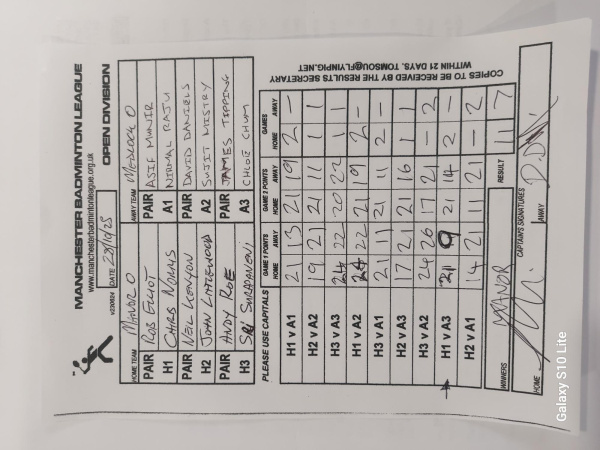 MANCHESTER BADMINTON LEAGUE
www.manchesterbadmintonleague.org.uk
OPEN DIVISION
v230924 DATE 22/10/25
HOME TEAM MANOR O AWAY TEAM MEDLOCK O
PAIR ROB ELLIOT PAIR ASIF MUNIR
H1 CHRIS NORRIS A1 NIRMAL RAJU
PAIR NEIL KENYON PAIR DAVID DANIELS
H2 JOHN LITTLEWOOD A2 SUJIT MISTRY
PAIR ANDY ROE PAIR JAMES TIPPING
H3 A3 CHLOE CHUM
PLEASE USE CAPITALS GAME 1 POINTS GAME 2 POINTS GAMES
HOME AWAY HOME AWAY HOME AWAY
H1 v A1 21 13 21 19 2 -
H2 v A2 19 21 21 11 1 1
H3 v A3 24 22 20 22 1 1
H1 v A2 22 21 19 2 -
H3 v A1 21 11 21 11 2 -
H2 v A3 17 21 21 16 1 1
H3 v A2 24 26 17 21 - 2
H1 v A3 21 9 21 14 2 -
H2 v A1 14 21 11 21 - 2
WINNERS MANOR RESULT 11 7
CAPTAIN'S SIGNATURES
HOME AWAY
COPIES TO BE RECEIVED BY THE RESULTS SECRETARY
WITHIN 21 DAYS. TOMSOU@FLYINPIG.NET
Galaxy S10 Lite